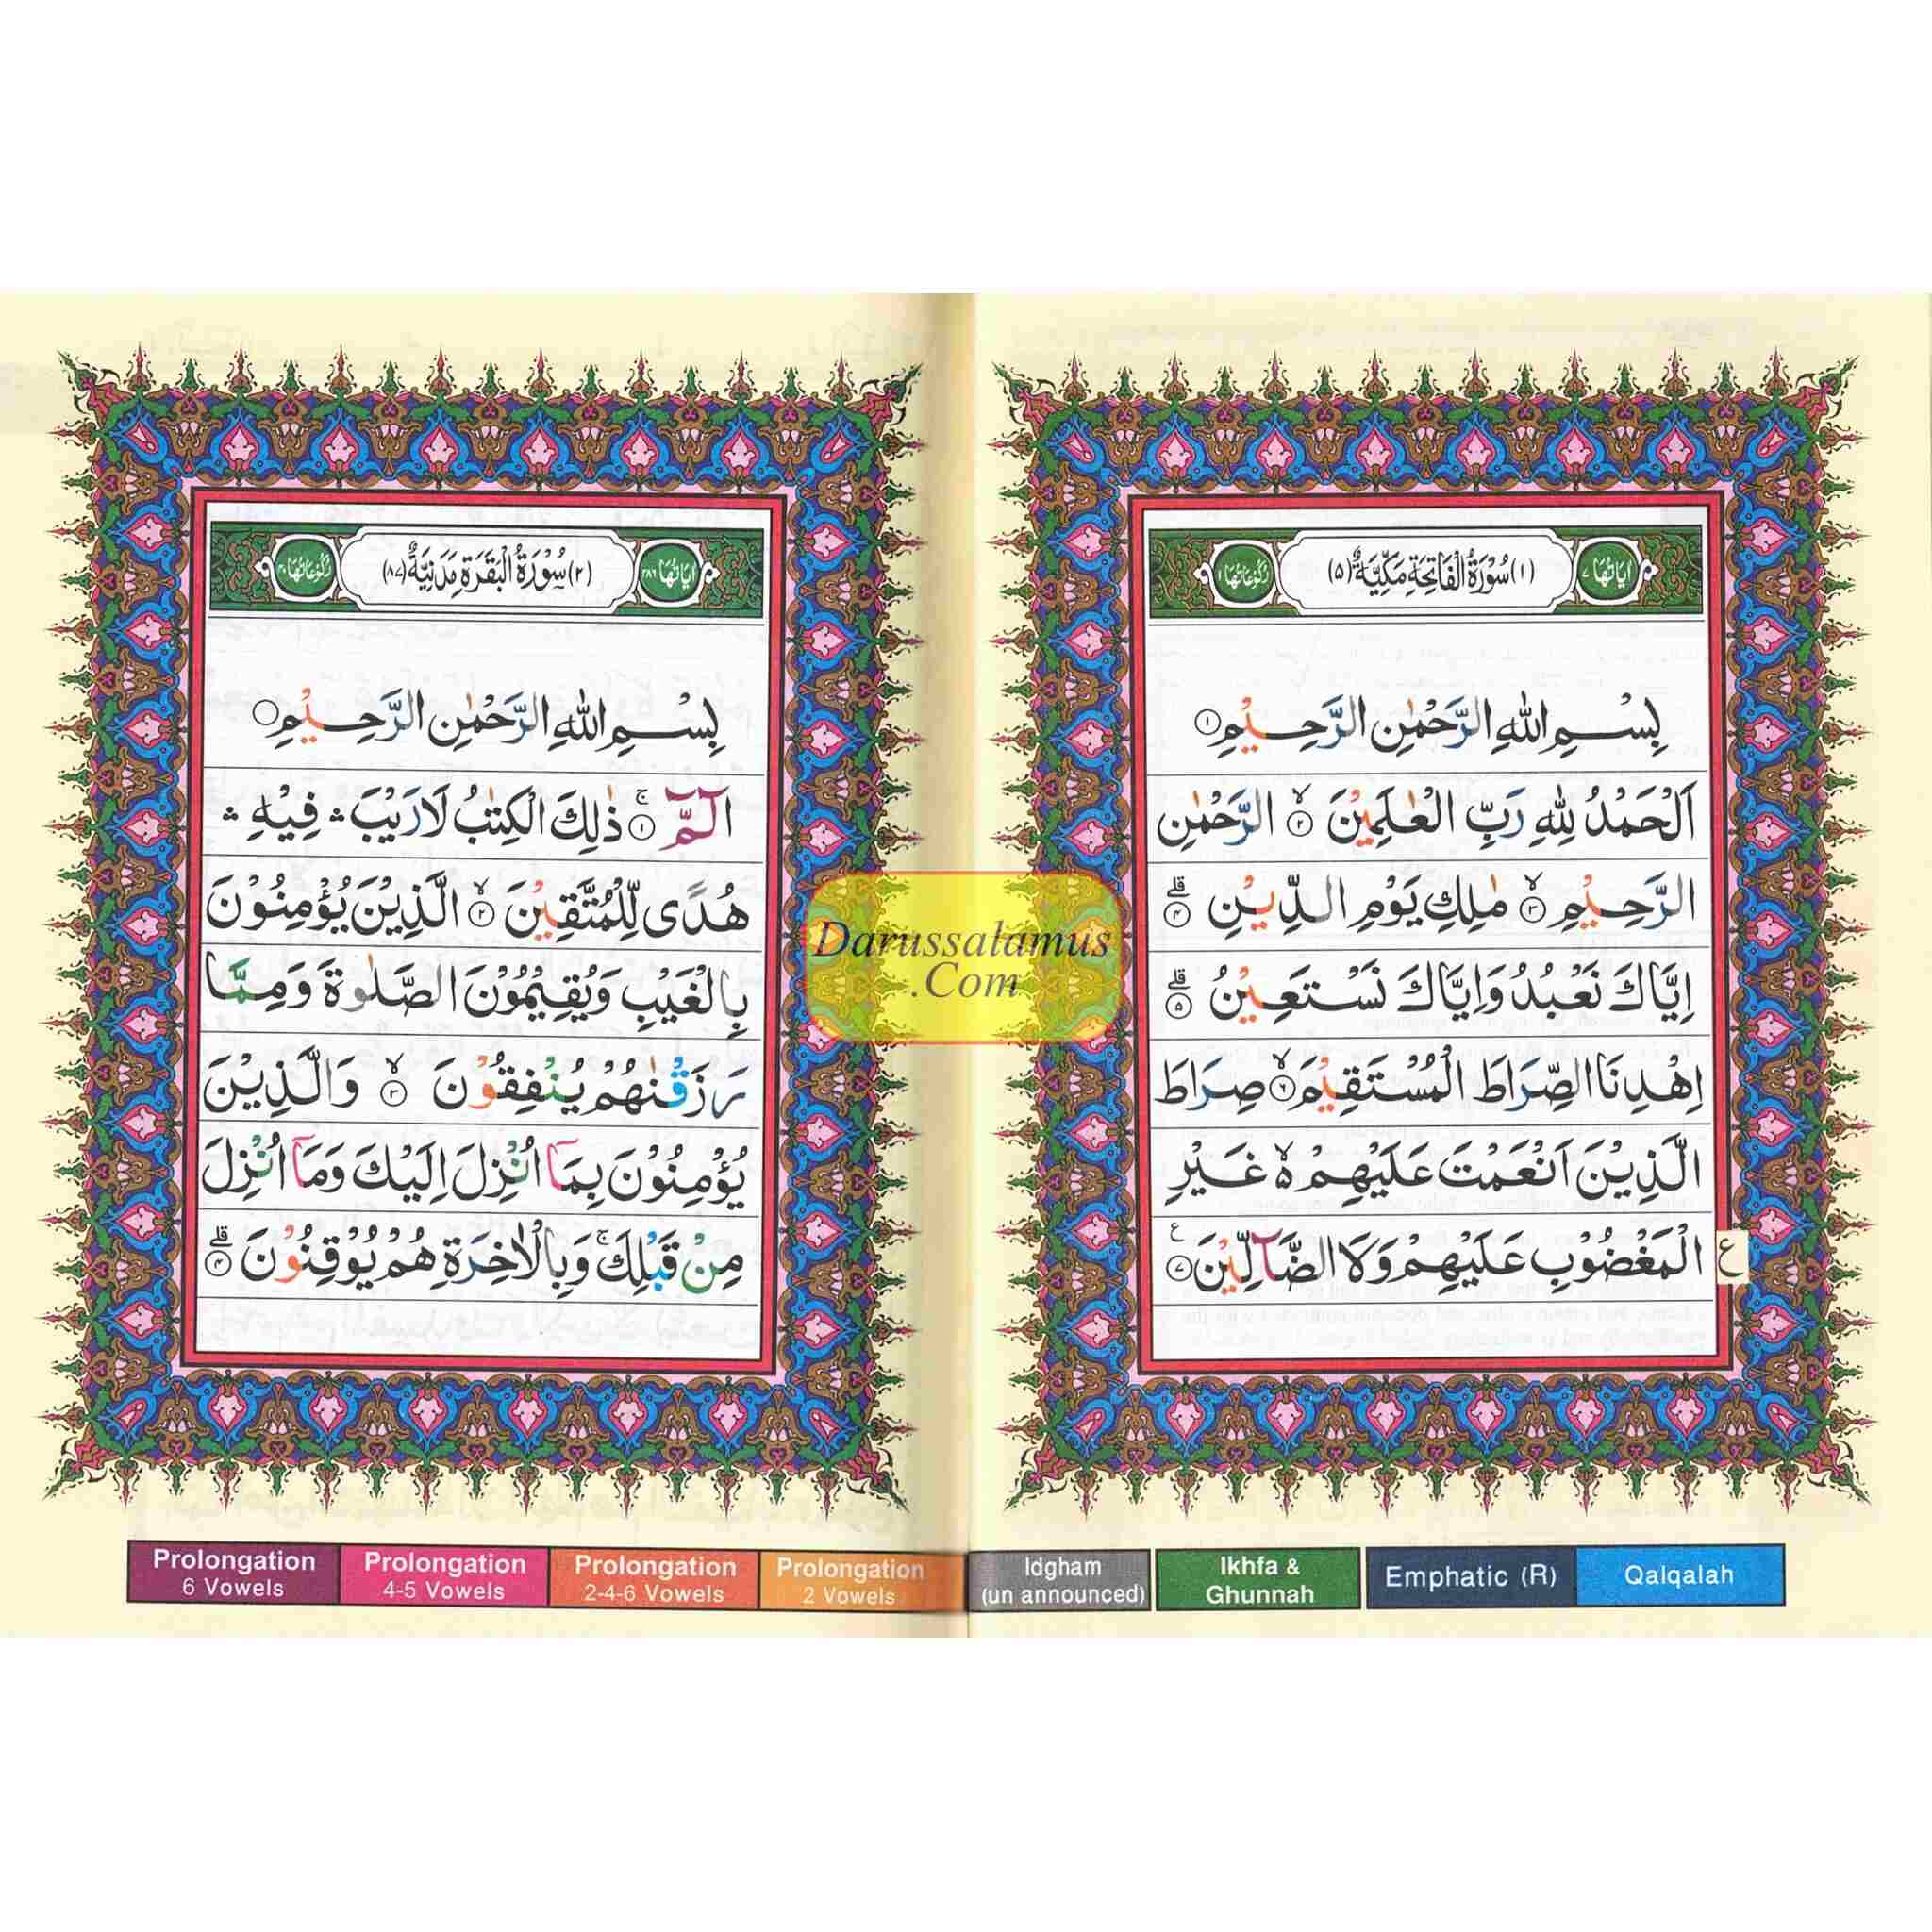 اٰيَاتُهَا ٧
(١) سُوْرَةُ الْفَاتِحَةِ مَكِّيَّةٌ (٥)
رُكُوْعَاتُهَا ١
بِسْمِ اللّٰهِ الرَّحْمٰنِ الرَّحِيْمِ ١
اَلْحَمْدُ لِلّٰهِ رَبِّ الْعٰلَمِيْنَ ٢ۙ الرَّحْمٰنِ
الرَّحِيْمِ ٣ۙ مٰلِكِ يَوْمِ الدِّيْنِ ٤ؕ
اِيَّاكَ نَعْبُدُ وَاِيَّاكَ نَسْتَعِيْنُ ٥ؕ
اِهْدِنَا الصِّرَاطَ الْمُسْتَقِيْمَ ٦ۙ صِرَاطَ
الَّذِيْنَ اَنْعَمْتَ عَلَيْهِمْ ۙ غَيْرِ
الْمَغْضُوْبِ عَلَيْهِمْ وَلَا الضَّآلِّيْنَ ٧ ع
ع
اٰيَاتُهَا ٢٨٦
(٢) سُوْرَةُ الْبَقَرَةِ مَدَنِيَّةٌ (٨٧)
رُكُوْعَاتُهَا ٤٠
بِسْمِ اللّٰهِ الرَّحْمٰنِ الرَّحِيْمِ
الٓمّٓ ١ۚ ذٰلِكَ الْكِتٰبُ لَا رَيْبَ ۛ فِيْهِ ۛ
هُدًى لِّلْمُتَّقِيْنَ ٢ۙ الَّذِيْنَ يُؤْمِنُوْنَ
بِالْغَيْبِ وَيُقِيْمُوْنَ الصَّلٰوةَ وَمِمَّا
رَزَقْنٰهُمْ يُنْفِقُوْنَ ٣ۙ وَالَّذِيْنَ
يُؤْمِنُوْنَ بِمَآ اُنْزِلَ اِلَيْكَ وَمَآ اُنْزِلَ
مِنْ قَبْلِكَ ۚ وَبِالْاٰخِرَةِ هُمْ يُوْقِنُوْنَ ٤ؕ
Darussalamus
.Com
Prolongation
6 Vowels
Prolongation
4-5 Vowels
Prolongation
2-4-6 Vowels
Prolongation
2 Vowels
Idgham
(un announced)
Ikhfa &
Ghunnah
Emphatic (R)
Qalqalah